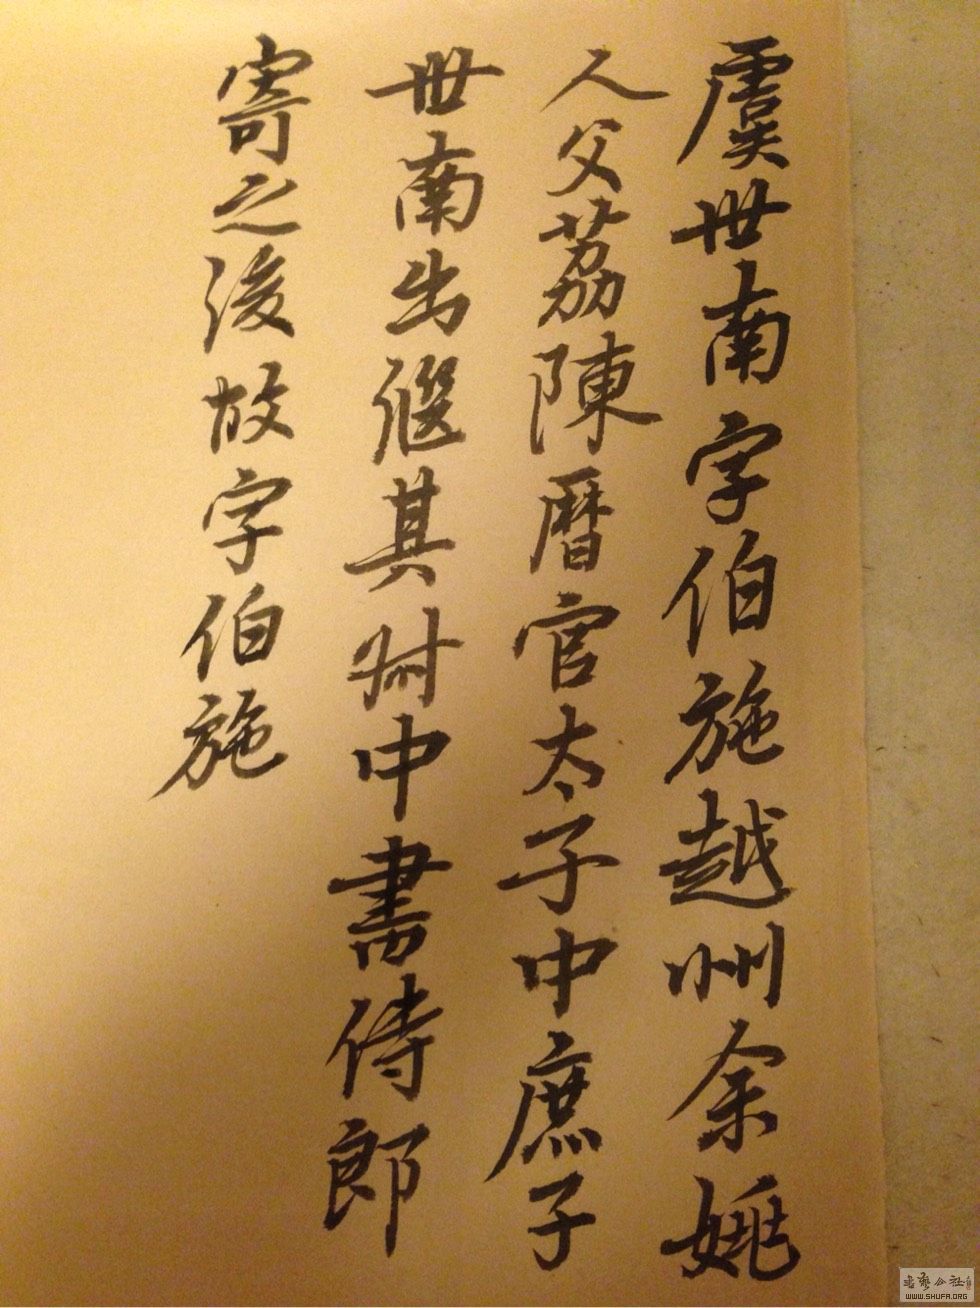 虞世南字伯施越州余姚
人父荔陳曆官太子中庶子
世南出继其叔中書侍郎
寄之後故字伯施
書藝公社
WWW.SHUFA.ORG